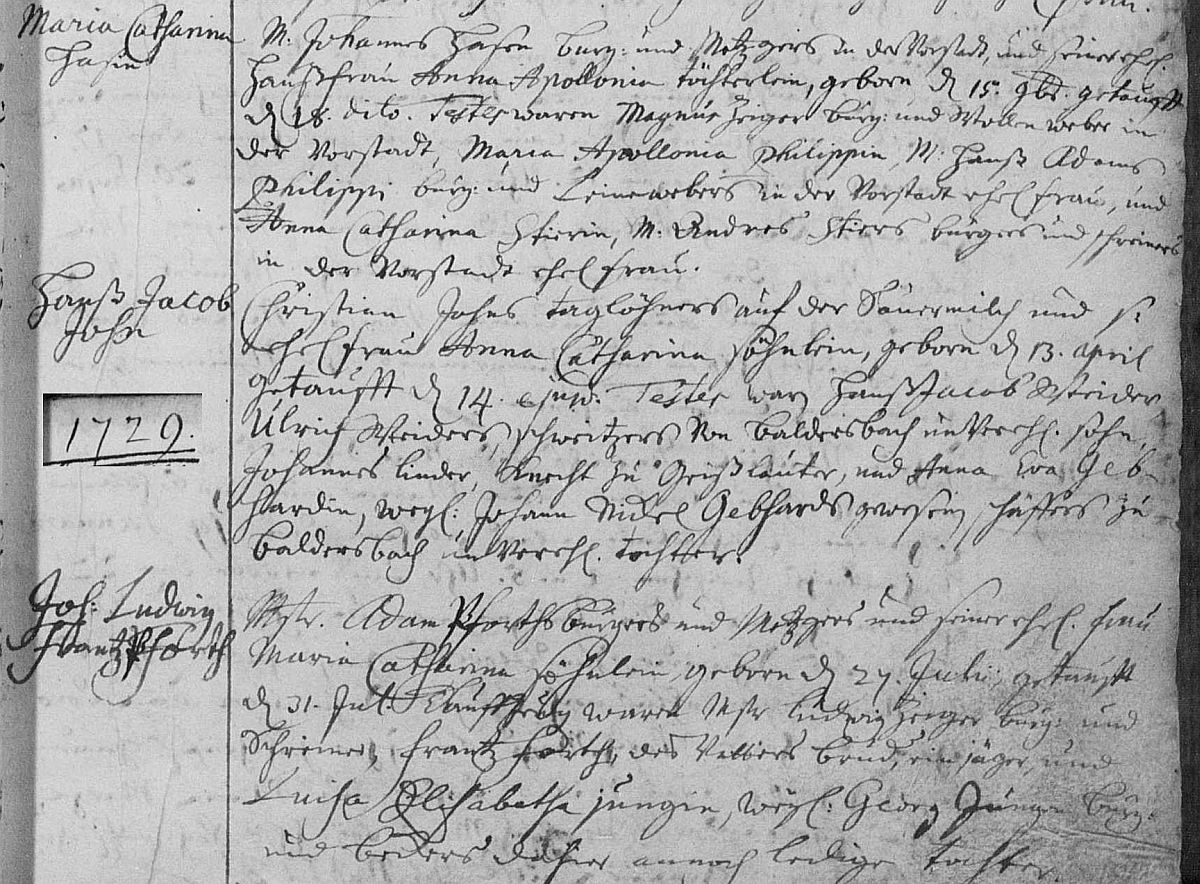 Maria Catharina
Hasin
M. Johannes Hasen burg: und Metzgers in der Vorstadt, und seiner ehel.
Haußfrau Anna Apollonia töchterlein, geborn d 15. 9br. getaufft
d 18. dito. Testes waren Magnus Zeiger burg: und Wollenweber in
der Vorstadt, Maria Apollonia Philippin, M. Hanß Adams
Philippi burg: und Leinewebers in der Vorstadt ehel frau, und
Anna Catharina Stierin, M. Andres Stiers burgers und schreiners
in der Vorstadt ehel frau.
Hanß Jacob
John
Christian Johns taglöhners auf der Sauermilch und s.
ehel frau Anna Catharina söhnlein, geborn d 13. April
getaufft d 14. ejusd. Testes warn Hanß Jacob Weider,
Ulrich Weiders, schweitzers von baldersbach unverehl. sohn,
1729.
Johannes Linder, Knecht zu Geißlauter, und Anna Eva Geb-
hardin, weyl: Johann Nickel Gebhards gewesen schäffers zu
baldersbach unverehl. tochter.
Joh: Ludwig
Frantz Pforth
Mstr. Adam Pforths burgers und Metzgers und seiner ehel. frau
Maria Catharina söhnlein, geborn d 27. Julii, getaufft
d 31. Jul. Tauffzeug waren Mstr Ludwig Zeiger burg: und
Schreiner, Frantz Forth, des Vatters brud, ein jäger, und
Luisa Elisabetha jungin, weyl: Georg Jungen burg:
und beckers dahier annoch ledige tochter.